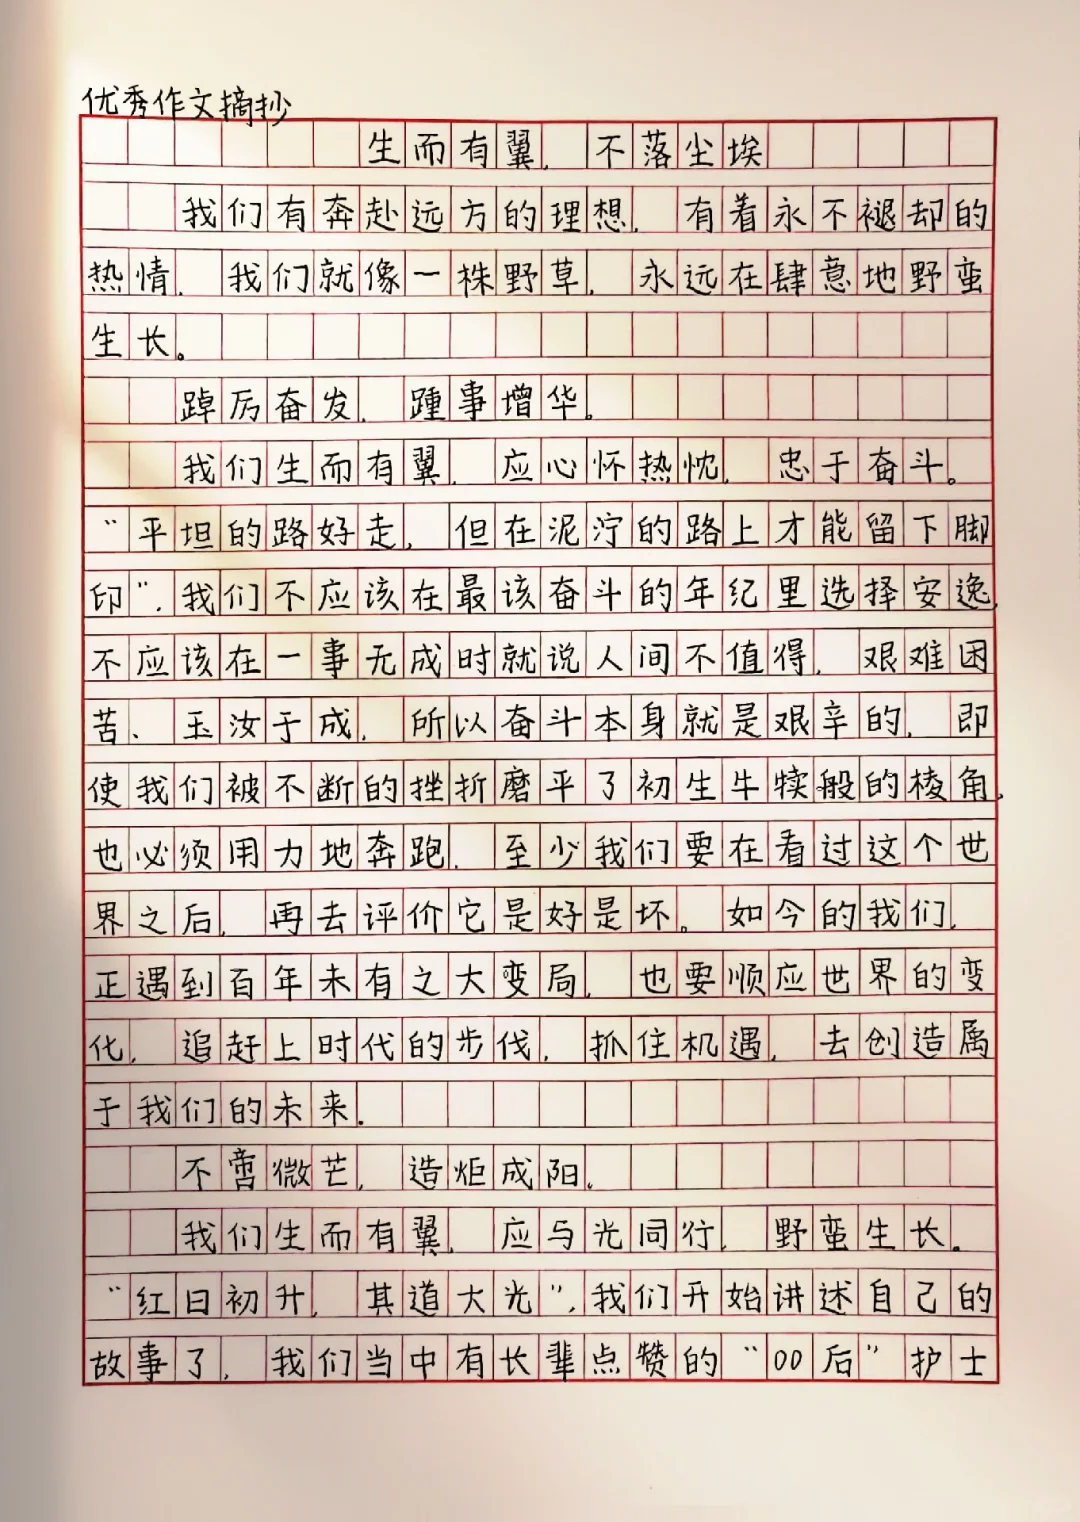 优秀作文摘抄
生而有翼,不落尘埃
我们有奔赴远方的理想,有着永不褪却的
热情,我们就像一株野草,永远在肆意地野蛮
生长。
踔厉奋发,踵事增华。
我们生而有翼,应心怀热忱,忠于奋斗。
“平坦的路好走,但在泥泞的路上才能留下脚
印”,我们不应该在最该奋斗的年纪里选择安逸,
不应该在一事无成时就说人间不值得,艰难困
苦、玉汝于成,所以奋斗本身就是艰辛的,即
使我们被不断的挫折磨平了初生牛犊般的棱角,
也必须用力地奔跑,至少我们要在看过这个世
界之后,再去评价它是好是坏。如今的我们,
正遇到百年未有之大变局,也要顺应世界的变
化,追赶上时代的步伐,抓住机遇,去创造属
于我们的未来.
不啬微芒,造炬成阳。
我们生而有翼,应与光同行,野蛮生长。
“红日初升,其道大光”,我们开始讲述自己的
故事了,我们当中有长辈点赞的“00后”护士